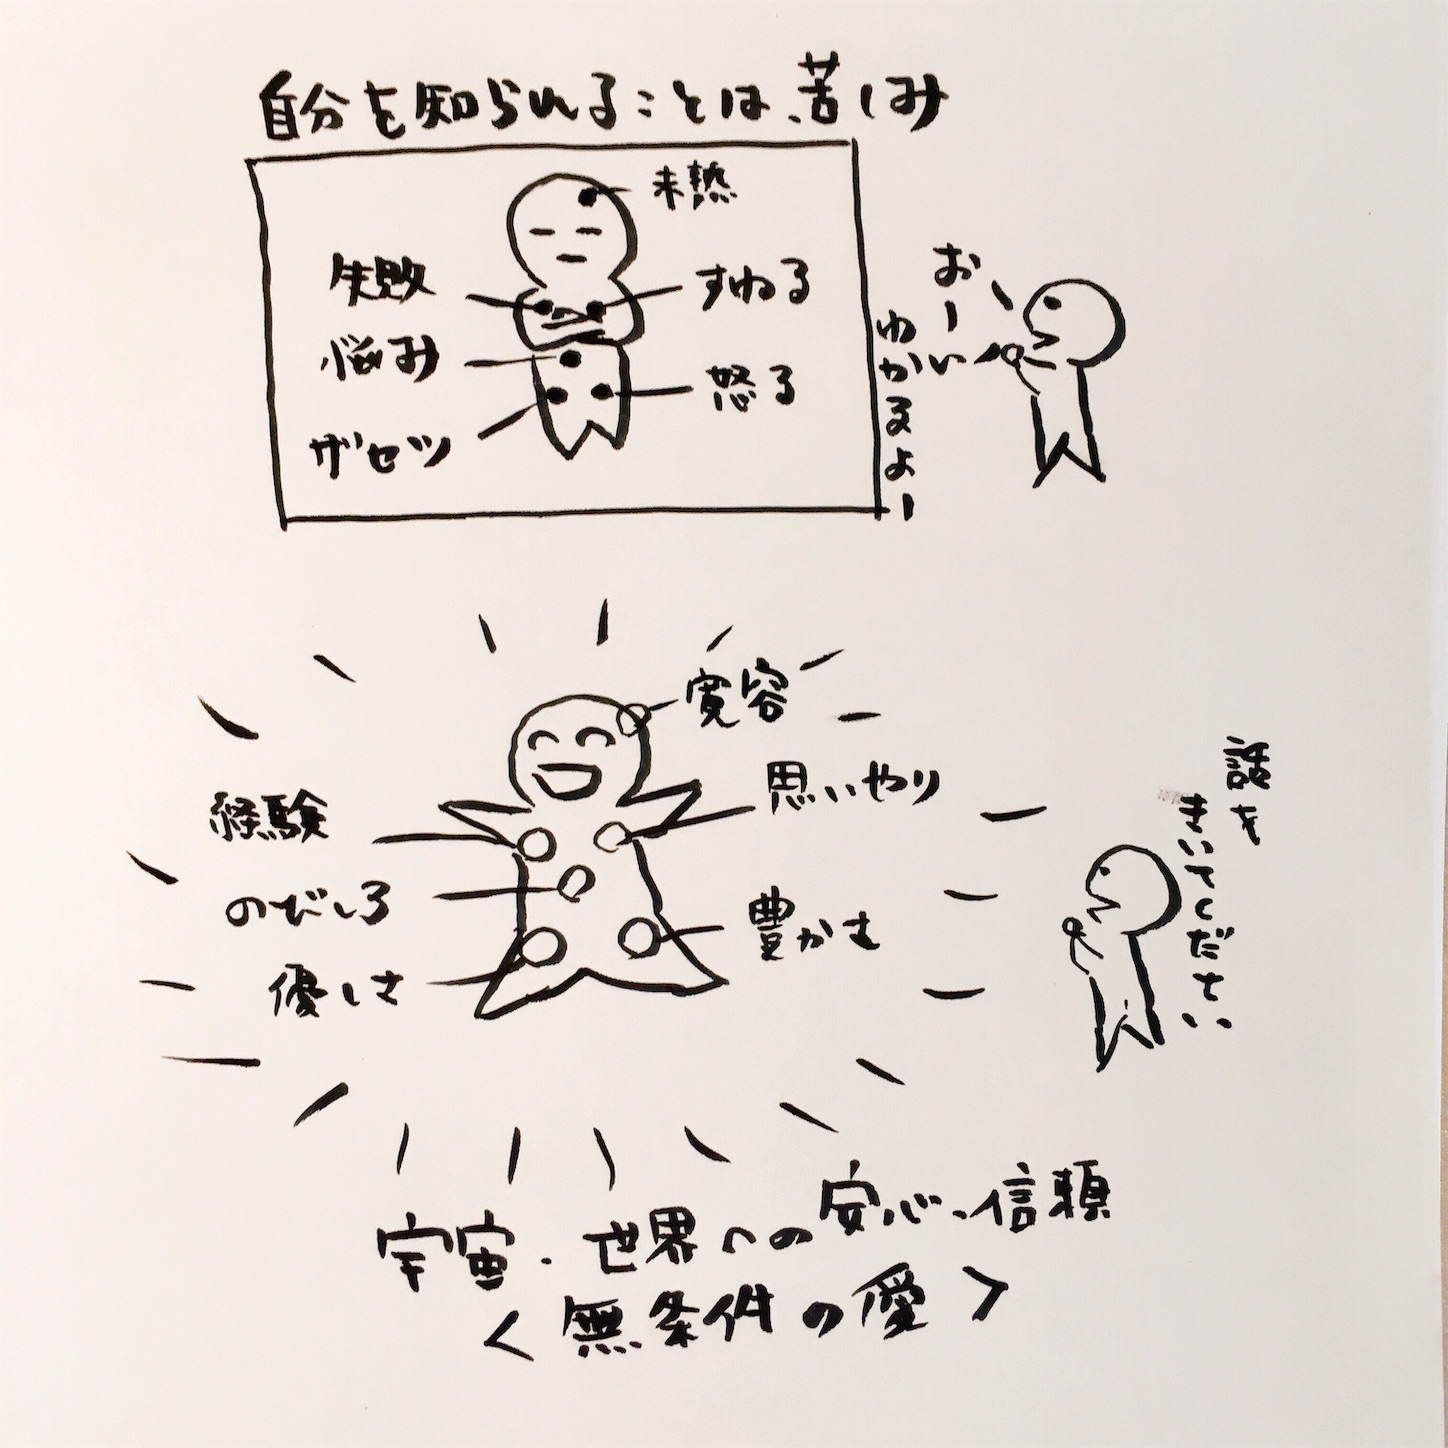 自分を知られることは、苦しみ
未熟
失敗
すねる
悩み
怒る
ザセツ
おーい
わかるよー
寛容
思いやり
経験
のびしろ
豊かさ
優しさ
話を
きいてください
宇宙・世界への安心、信頼
<無条件の愛>